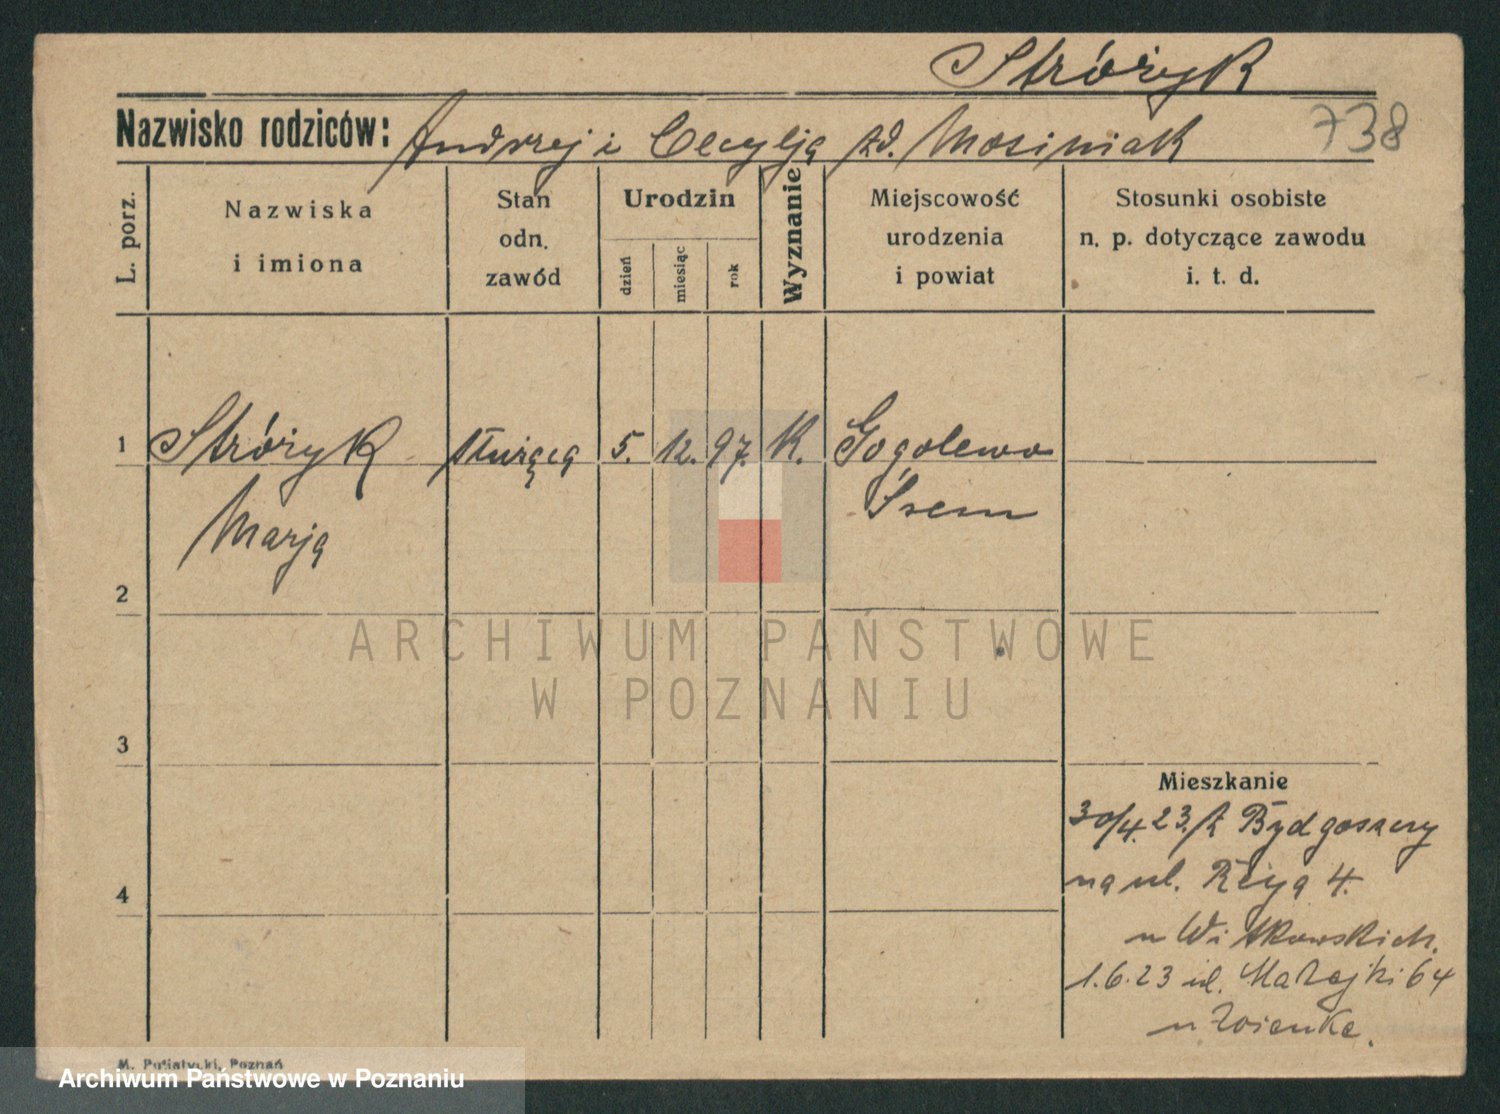 Stróżyk
Nazwisko rodziców: Andrzej i Cecylją zd. Mosiniak 738
L. porz.
Nazwiska
i imiona
Stan
odn.
zawód
Urodzin
dzień
miesiąc
rok
Wyznanie
Miejscowość
urodzenia
i powiat
Stosunki osobiste
n. p. dotyczące zawodu
i. t. d.
1 Stróżyk służącą 5. 12. 97. K. Gogolewo
Marją Śrem
2
3
4
Mieszkanie
30/4.23. z Bydgoszczy
na ul. Reya 4.
u Witkowskich.
1.6.23 ul. Matejki 64
u
M. Putiatycki, Poznań
ARCHIWUM PAŃSTWOWE
W POZNANIU
Archiwum Państwowe w Poznaniu